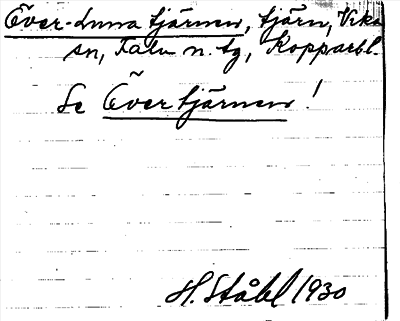 Över-Lunatjärnen, tjärn, Vika
sn, Falu n. tg, Kopparbl.
Se Övertjärnen!
H. Ståhl 1930